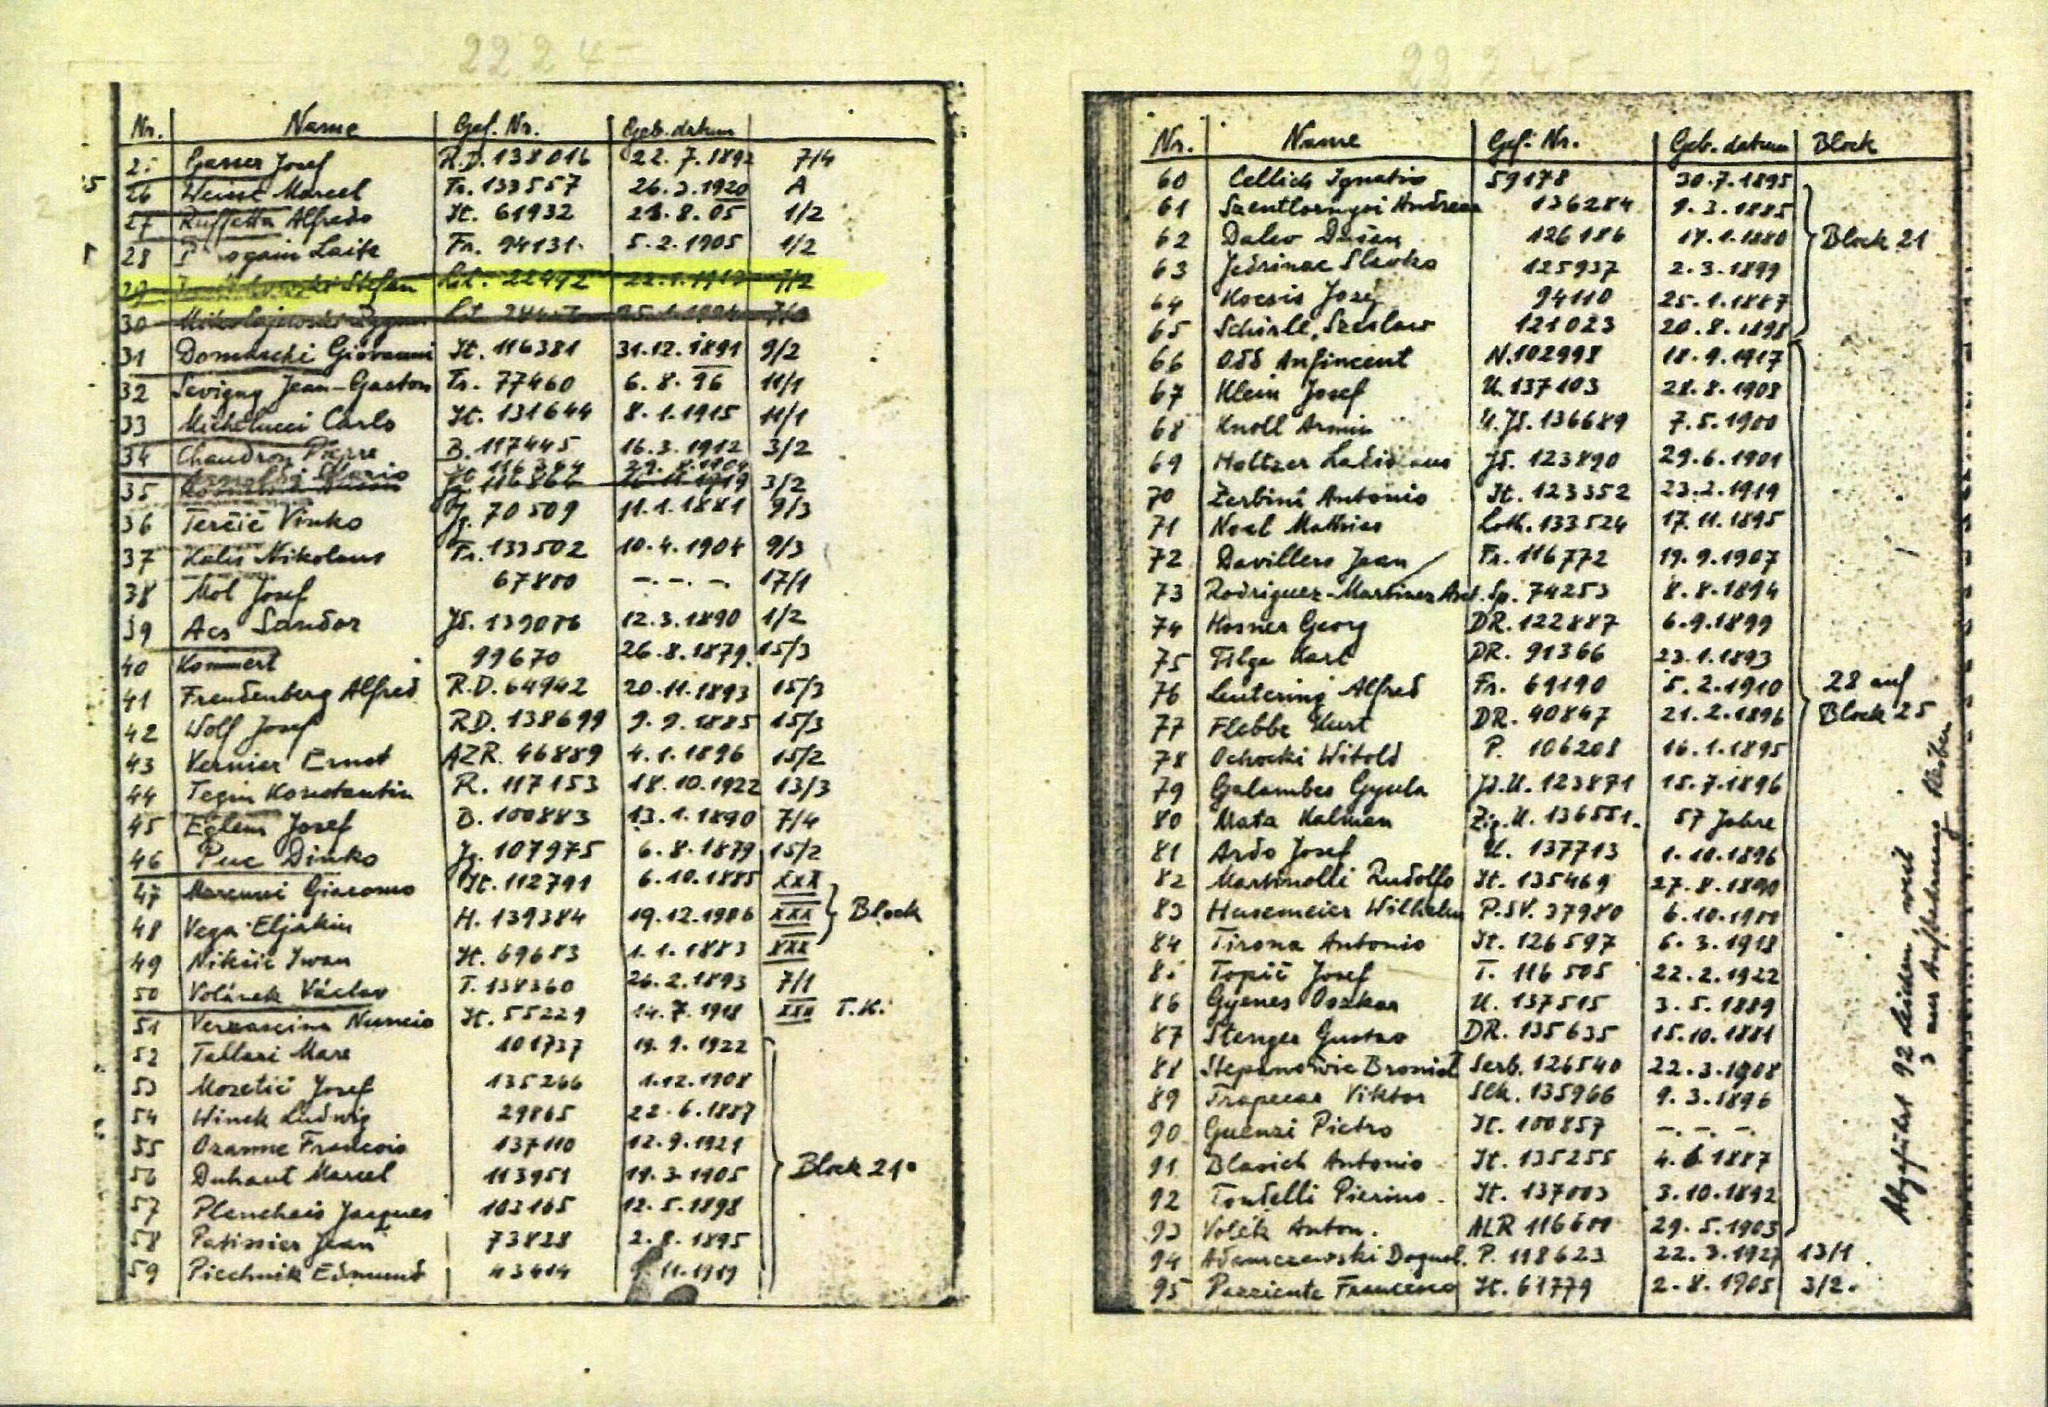 2224-
Nr. Name Gef. Nr. Geb. datum
25 Gasser Josef R.D. 138016 22.7.1892 7/4
26 Heuse Marcel Fr. 133557 26.3.1920 A
27 Ruffetta Alfredo It. 61932 8.05 1/2
28 Laite Fr. 94131. 5.2.1905 1/2
29 Stefan Lit. 22492 22.1.1912 7/2
30 Mikolajewski Lit. 7/2
31 Giovanni It. 116381 31.12.1891 9/2
32 Sevigny Jean-Gaston Fr. 77460 6.8.96 11/1
33 Michelucci Carlo It. 131644 8.1.1915 11/1
34 Chaudron Pierre B. 117445 16.3.1912 3/2
Arnoldi Mario
35 3/2
36 Terčič Vinko Jg. 70509 11.1.1881 9/3
37 Kalis Nikolaus Fr. 133502 10.4.1904 9/3
38 Mol Josef 67800 -.-.-. 17/1
39 Acs Sandor Jd. 139086 12.3.1890 1/2
40 Kommert 99670 26.8.1879. 15/3
41 Freudenberg Alfred R.D. 64942 20.11.1893 15/3
42 Wolf Josef RD. 138699 9.9.1885 15/3
43 Vernier Ernst AZR. 46889 4.1.1896 15/2
44 Tegin Konstantin R. 117153 18.10.1922 13/3
45 Eglem Josef B. 100883 13.1.1890 7/4
46 Puc Dinko Jg. 107975 6.8.1879 15/2
47 Marenni Giacomo It. 112791 6.10.1885 XXX
48 Vega Eljakim H. 139384 19.12.1906 XXX Block
49 Nikšić Iwan It. 69683 1.1.1883 XXX
50 Volánek Václav T. 138360 26.2.1893 7/1
51 Nuncio It. 55229 14.7.1918 XXX T.K.
52 Tallari Mare 101737 19.9.1922
53 Mozetič Josef 135266 1.12.1908
54 Winek Ludwig 29865 22.6.1887
55 Ozanne Francois 137110 12.9.1921
56 Duhaut Marcel 113951 19.3.1905 Block 21
57 Planchais Jacques 103165 12.5.1898
58 Patissier Jean 73828 2.8.1895
59 Piechnik Edmund 43414 11.1919
2245-
Nr. Name Gef. Nr. Geb. datum Block
60 Cellich Ignatio 59178 30.7.1895
61 Andreas 136284 9.3.1885
62 Dalev Dušan 126186 17.1.1880 Block 21
63 Jedrinac Slavko 125937 2.3.1899
64 Kocsis Josef 94110 25.1.1887
65 Schirle, Szeslaw 121023 20.8.1898
66 Odd Anfincent N.102998 18.9.1917
67 Klein Josef U. 137103 28.8.1908
68 Knoll Armin U.Jd. 136689 7.5.1900
69 Holtzer Ladislaus Jd. 123890 29.6.1901
70 Zerbini Antonio It. 123352 23.2.1919
71 Noel Mathias Loth. 133524 17.11.1895
72 Davillers Jean Fr. 116772 19.9.1907
73 Rodriguez-Martinez Ant. Sp. 74253 8.8.1894
74 Hosner Georg DR. 122887 6.9.1899
75 Filga Karl DR. 91366 23.1.1893
76 Leutering Alfred Fr. 69190 5.2.1910 28 auf
77 Flebbe Kurt DR. 40847 21.2.1896 Block 25
78 Ochocki Witold P. 106208 16.1.1895
79 Galambos Gyula Jd.U. 123871 15.7.1896
80 Mata Kalman Zig.U. 136551. 57 Jahre
81 Ardo Josef U. 137713 1.10.1896
82 Martinolli Rudolfo It. 135469 27.8.1890
83 Husemeier Wilhelm P.SV. 37980 6.10.1900
84 Tirona Antonio It. 126597 6.3.1918
85 Topič Josef T. 116505 22.2.1922
86 Gyenes Oszkar U. 137515 3.5.1889
87 Stenger Gustav DR. 135635 15.10.1881
88 Stepanowic Bronisl Serb. 126540 22.3.1908
89 Trapecar Viktor Slk. 135966 9.3.1896
90 Guenzi Pietro It. 100857 -.-.-.
91 Blasich Antonio It. 135255 4.6.1887
92 Tondelli Pierino. It. 137003 3.10.1892
93 Volčik Anton. ALR 116600 29.5.1903
94 Adamczewski Dogul. P. 118623 22.3.1927 13/1
95 Pazziente Francesco It. 61779 2.8.1905 3/2.
Abgeführt 92 Leichen, weil
3 zur Aufbahrung bleiben